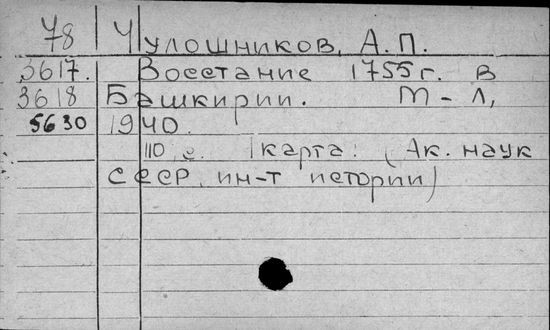 78 Чулошников, А.П.
3617. Восстание 1755г. в
3618 Башкирии. М-Л,
5630 1940.
110 с. 1карта. (Ак. наук
СССР, ин-т истории)